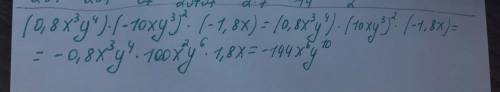 (0,8x³y⁴)·(-10xy³)²·(-1,8x)=(0,8x³y⁴)·(10xy³)²·(-1,8x)=
=-0,8x³y⁴·100x²y⁶·1,8x=-144x⁶y¹⁰